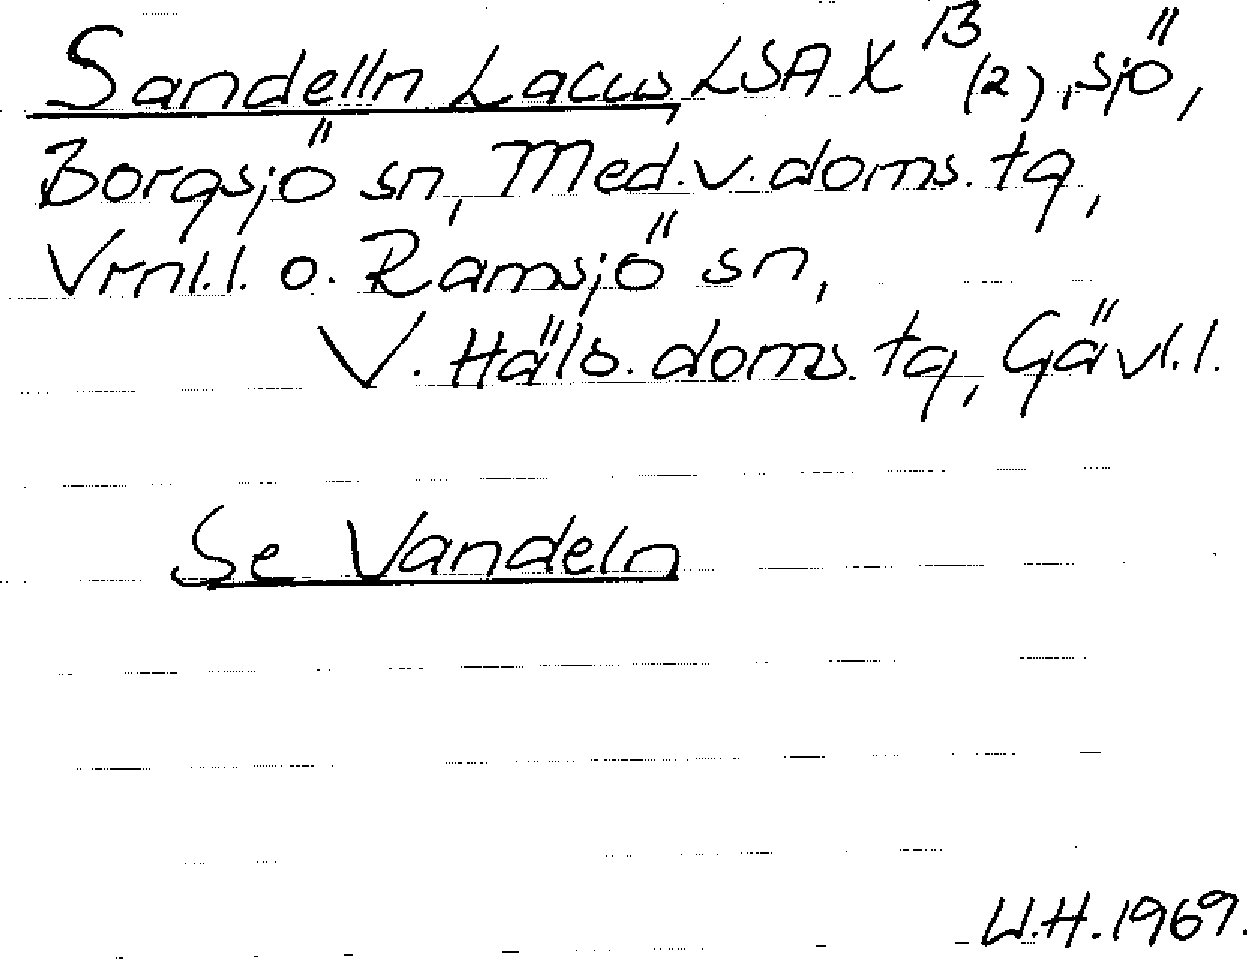 Sandelln Lacus, LSA X B (2), sjö,
Borgsjö sn, Med.v.doms.tg,
Vrnl.l. o. Ramsjö sn,
V. Häls. doms. tg, Gävl.l.
Se Vandeln
U.H.1969.